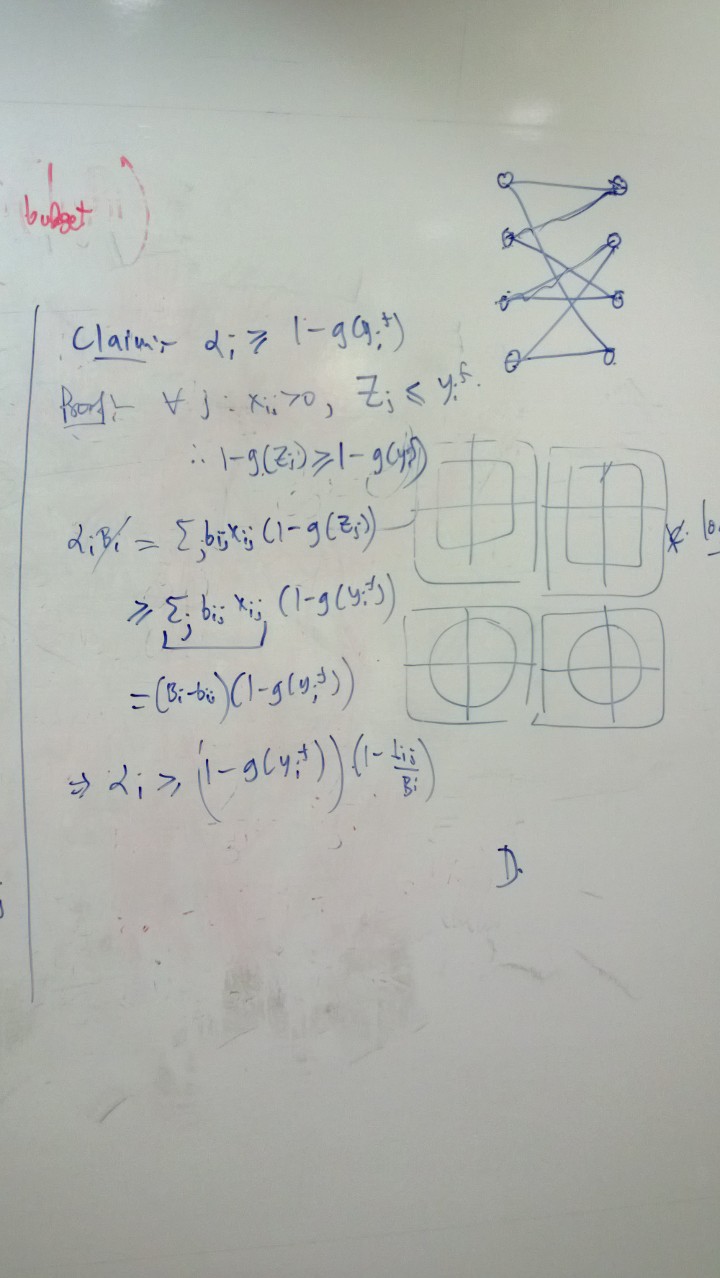 budget
Claim:- α_i ≥ 1-g(y_i^f)
Proof:- ∀ j : x_ij >0, Z_j ≤ y_i^f.
∴ 1-g(Z_j) ≥ 1-g(y_i^f)
α_i B_i = Σ_j b_ij x_ij (1-g(Z_j))
≥ Σ_j b_ij x_ij (1-g(y_i^f))
= (B_i-b_ij)(1-g(y_i^f))
⇒ α_i ≥ (1-g(y_i^f)) (1-b_ij/B_i)
D.